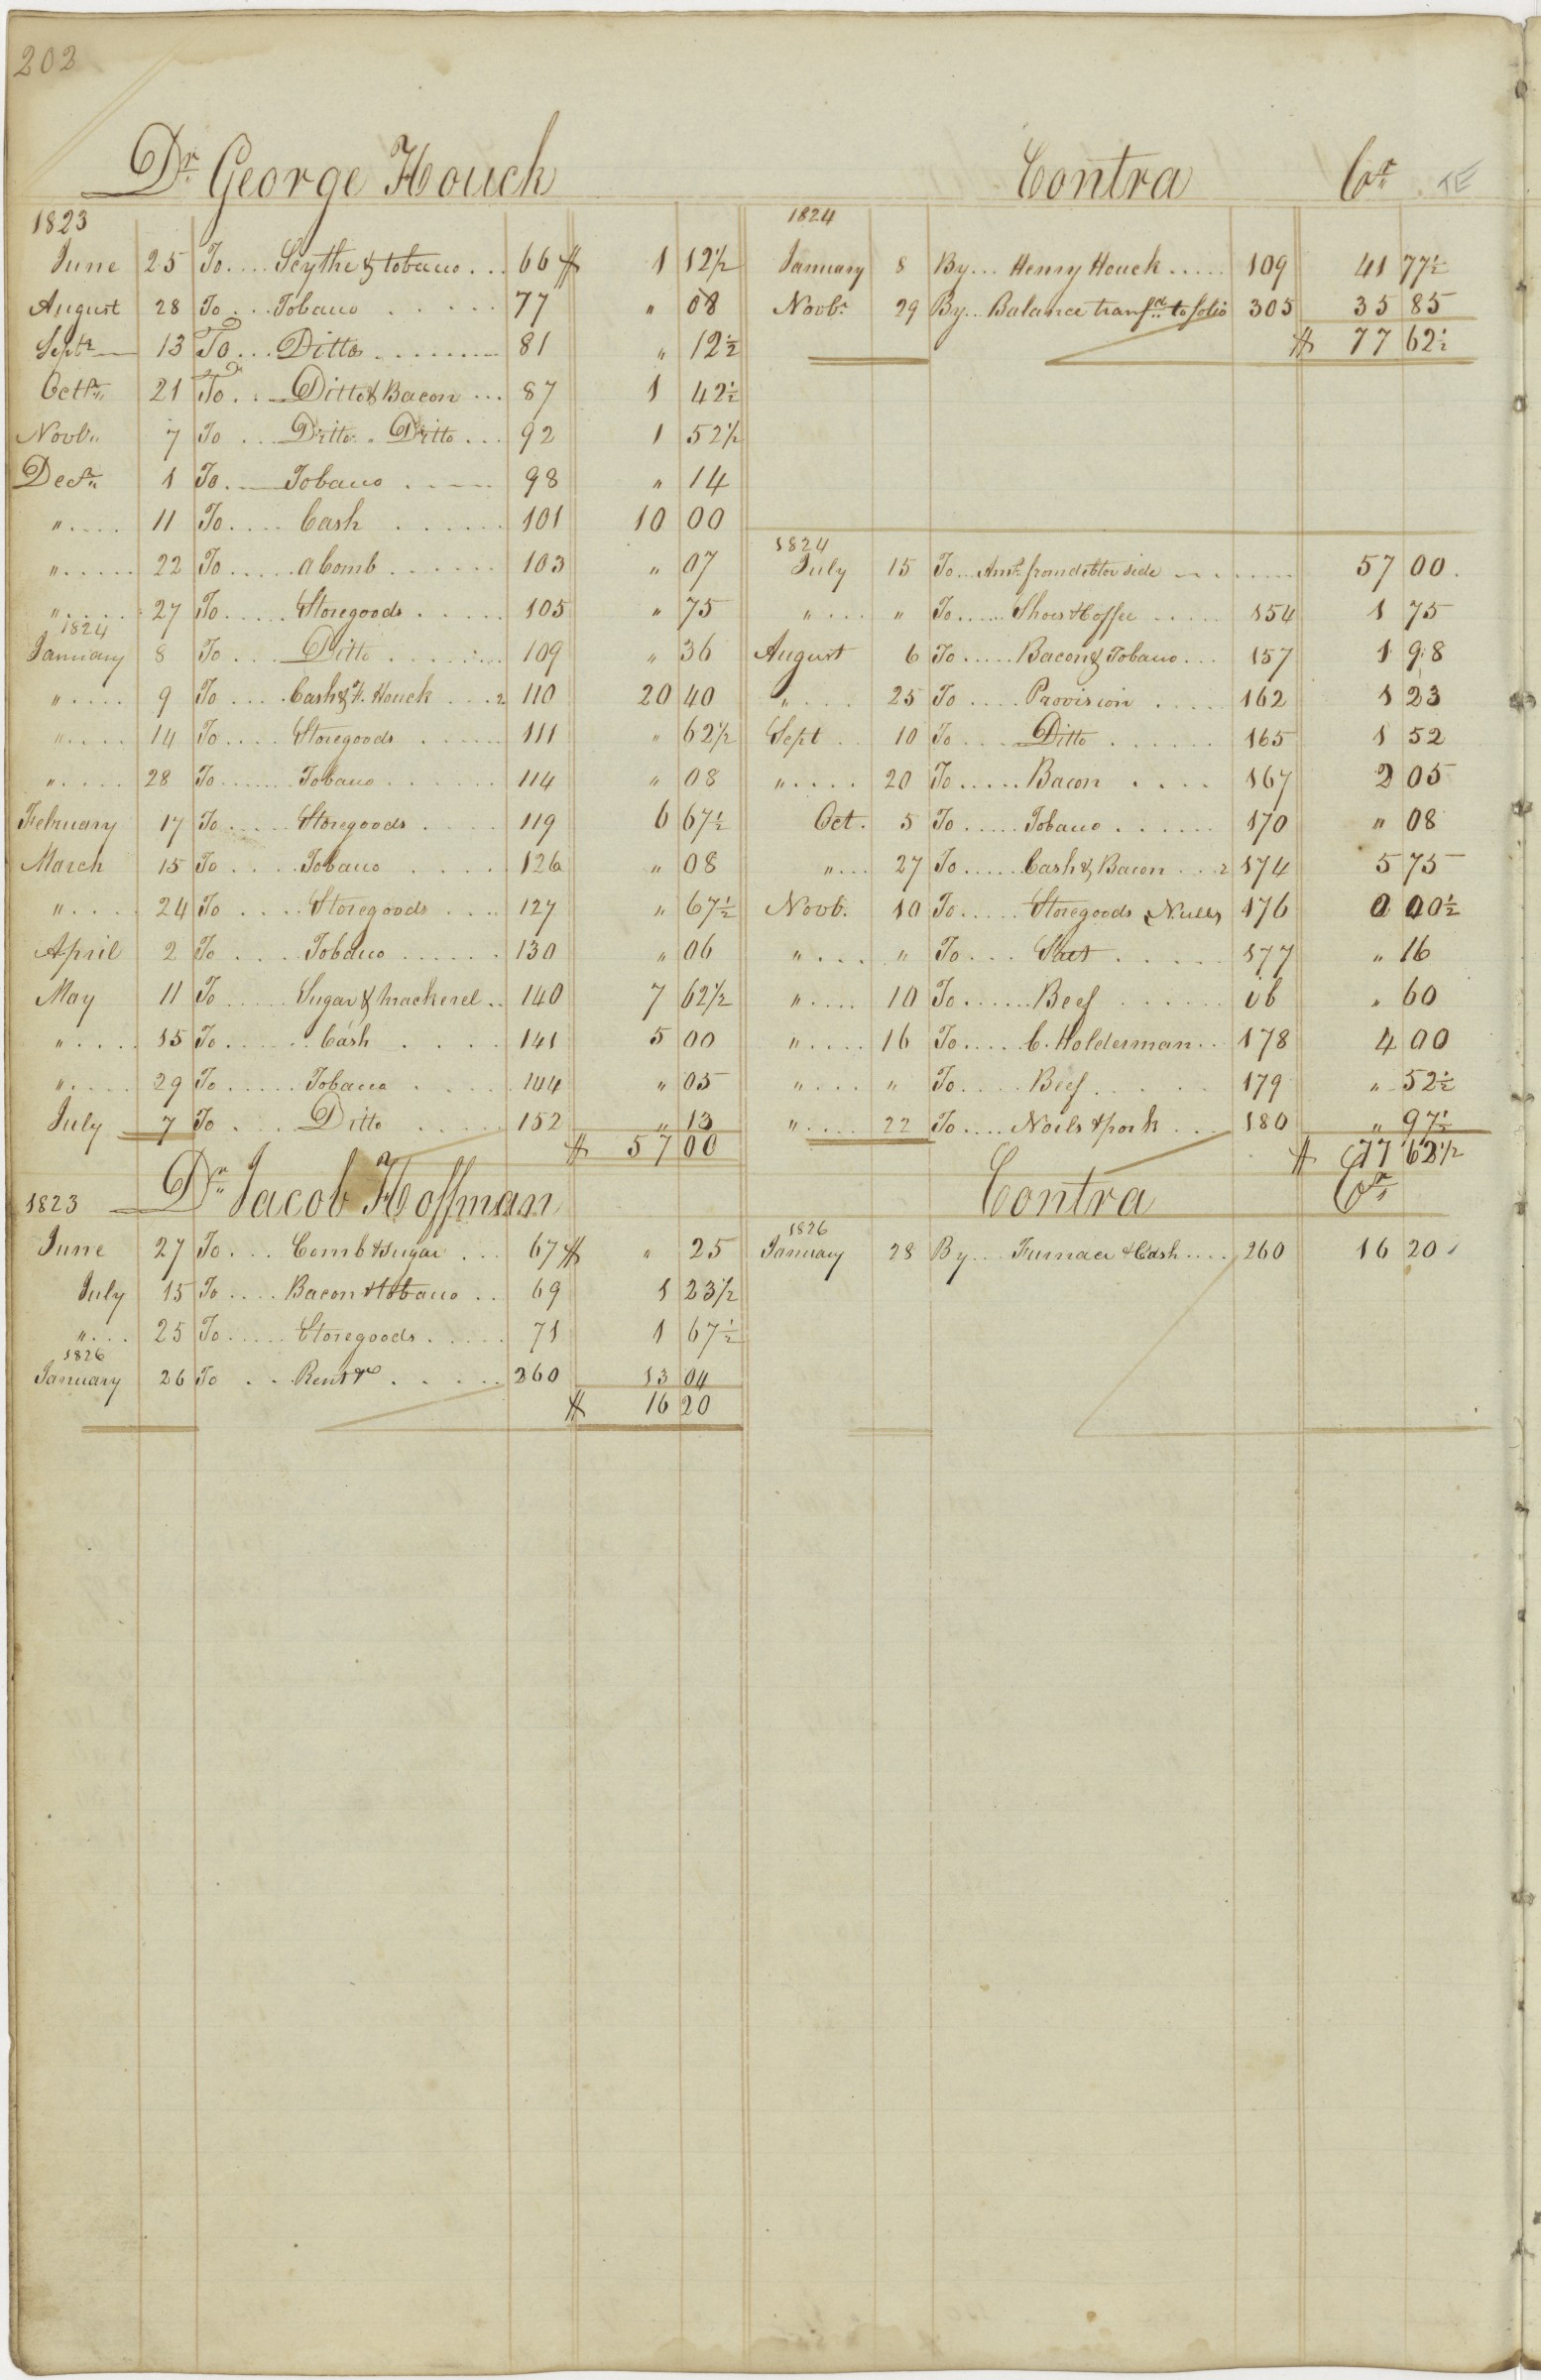 202
Dr George Houck
1823
June 25 To .... Scythe & tobacco ... 66 $ 1 12½
August 28 To ... Tobacco ..... 77 " 08
Septr 13 To ... Ditto ........ 81 " 12½
Octbr 21 To ... Ditto & Bacon ... 87 1 42½
Novbr 7 To ... Ditto " Ditto ... 92 1 52½
Decbr 1 To .... Tobacco ..... 98 " 14
" .... 11 To .... Cash ...... 101 10 00
" ..... 22 To ..... a Comb ...... 103 " 07
" ..... 27 To ..... Storegoods ..... 105 " 75
1824
January 8 To .... Ditto ....... 109 " 36
" .... 9 To .... Cash & H. Houck ... 2 110 20 40
" .... 14 To .... Storegoods ..... 111 " 62½
" .... 28 To ...... Tobacco ...... 114 " 08
February 17 To ..... Storegoods .... 119 6 67½
March 15 To ..... Tobacco ..... 126 " 08
" .... 24 To .... Storegoods .... 127 " 67½
April 2 To .... Tobacco ...... 130 " 06
May 11 To ..... Sugar & Mackerel .. 140 7 62½
" .... 15 To ...... Cash ..... 141 5 00
" .... 29 To ..... Tobacco .... 144 " 05
July 7 To .... Ditto ..... 152 " 13
$ 57 00
Contra Cr
1824
January 8 By ... Henry Houck ..... 109 41 77½
Novbr 29 By .. Balance transfr to folio 305 35 85
$ 77 62½
1824
July 15 To .. Amt from debtor side ....... 57 00
" ... " To ..... Shoes & Coffee ..... 154 1 75
August 6 To ..... Bacon & Tobacco ... 157 1 98
" .... 25 To .... Provision ..... 162 1 23
Sept .. 10 To .... Ditto ...... 165 1 52
" .... 20 To ..... Bacon .... 167 2 05
Oct. 5 To ..... Tobacco ...... 170 " 08
" ... 27 To ..... Cash & Bacon ... 2 174 5 75
Novb. 10 To ..... Storegoods 176 0 00½
" .... " To ... ..... 177 " 16
" .... 10 To ...... Beef ...... ib " 60
" .... 16 To .... C. Holderman .. 178 4 00
" ... " To .... Beef ..... 179 " 52½
" .... 22 To .... Nails & pork ... 180 " 97½
$ 77 62½
Dr Jacob Hoffman
1823
June 27 To ... Comb & sugar ... 67 $ " 25
July 15 To .... Bacon & tobacco .. 69 1 23½
" ... 25 To ..... Storegoods ..... 71 1 67½
1826
January 26 To ... Rent &c ..... 260 13 04
$ 16 20
Contra Cr
1826
January 28 By ... Furnace & Cash .... 260 16 20